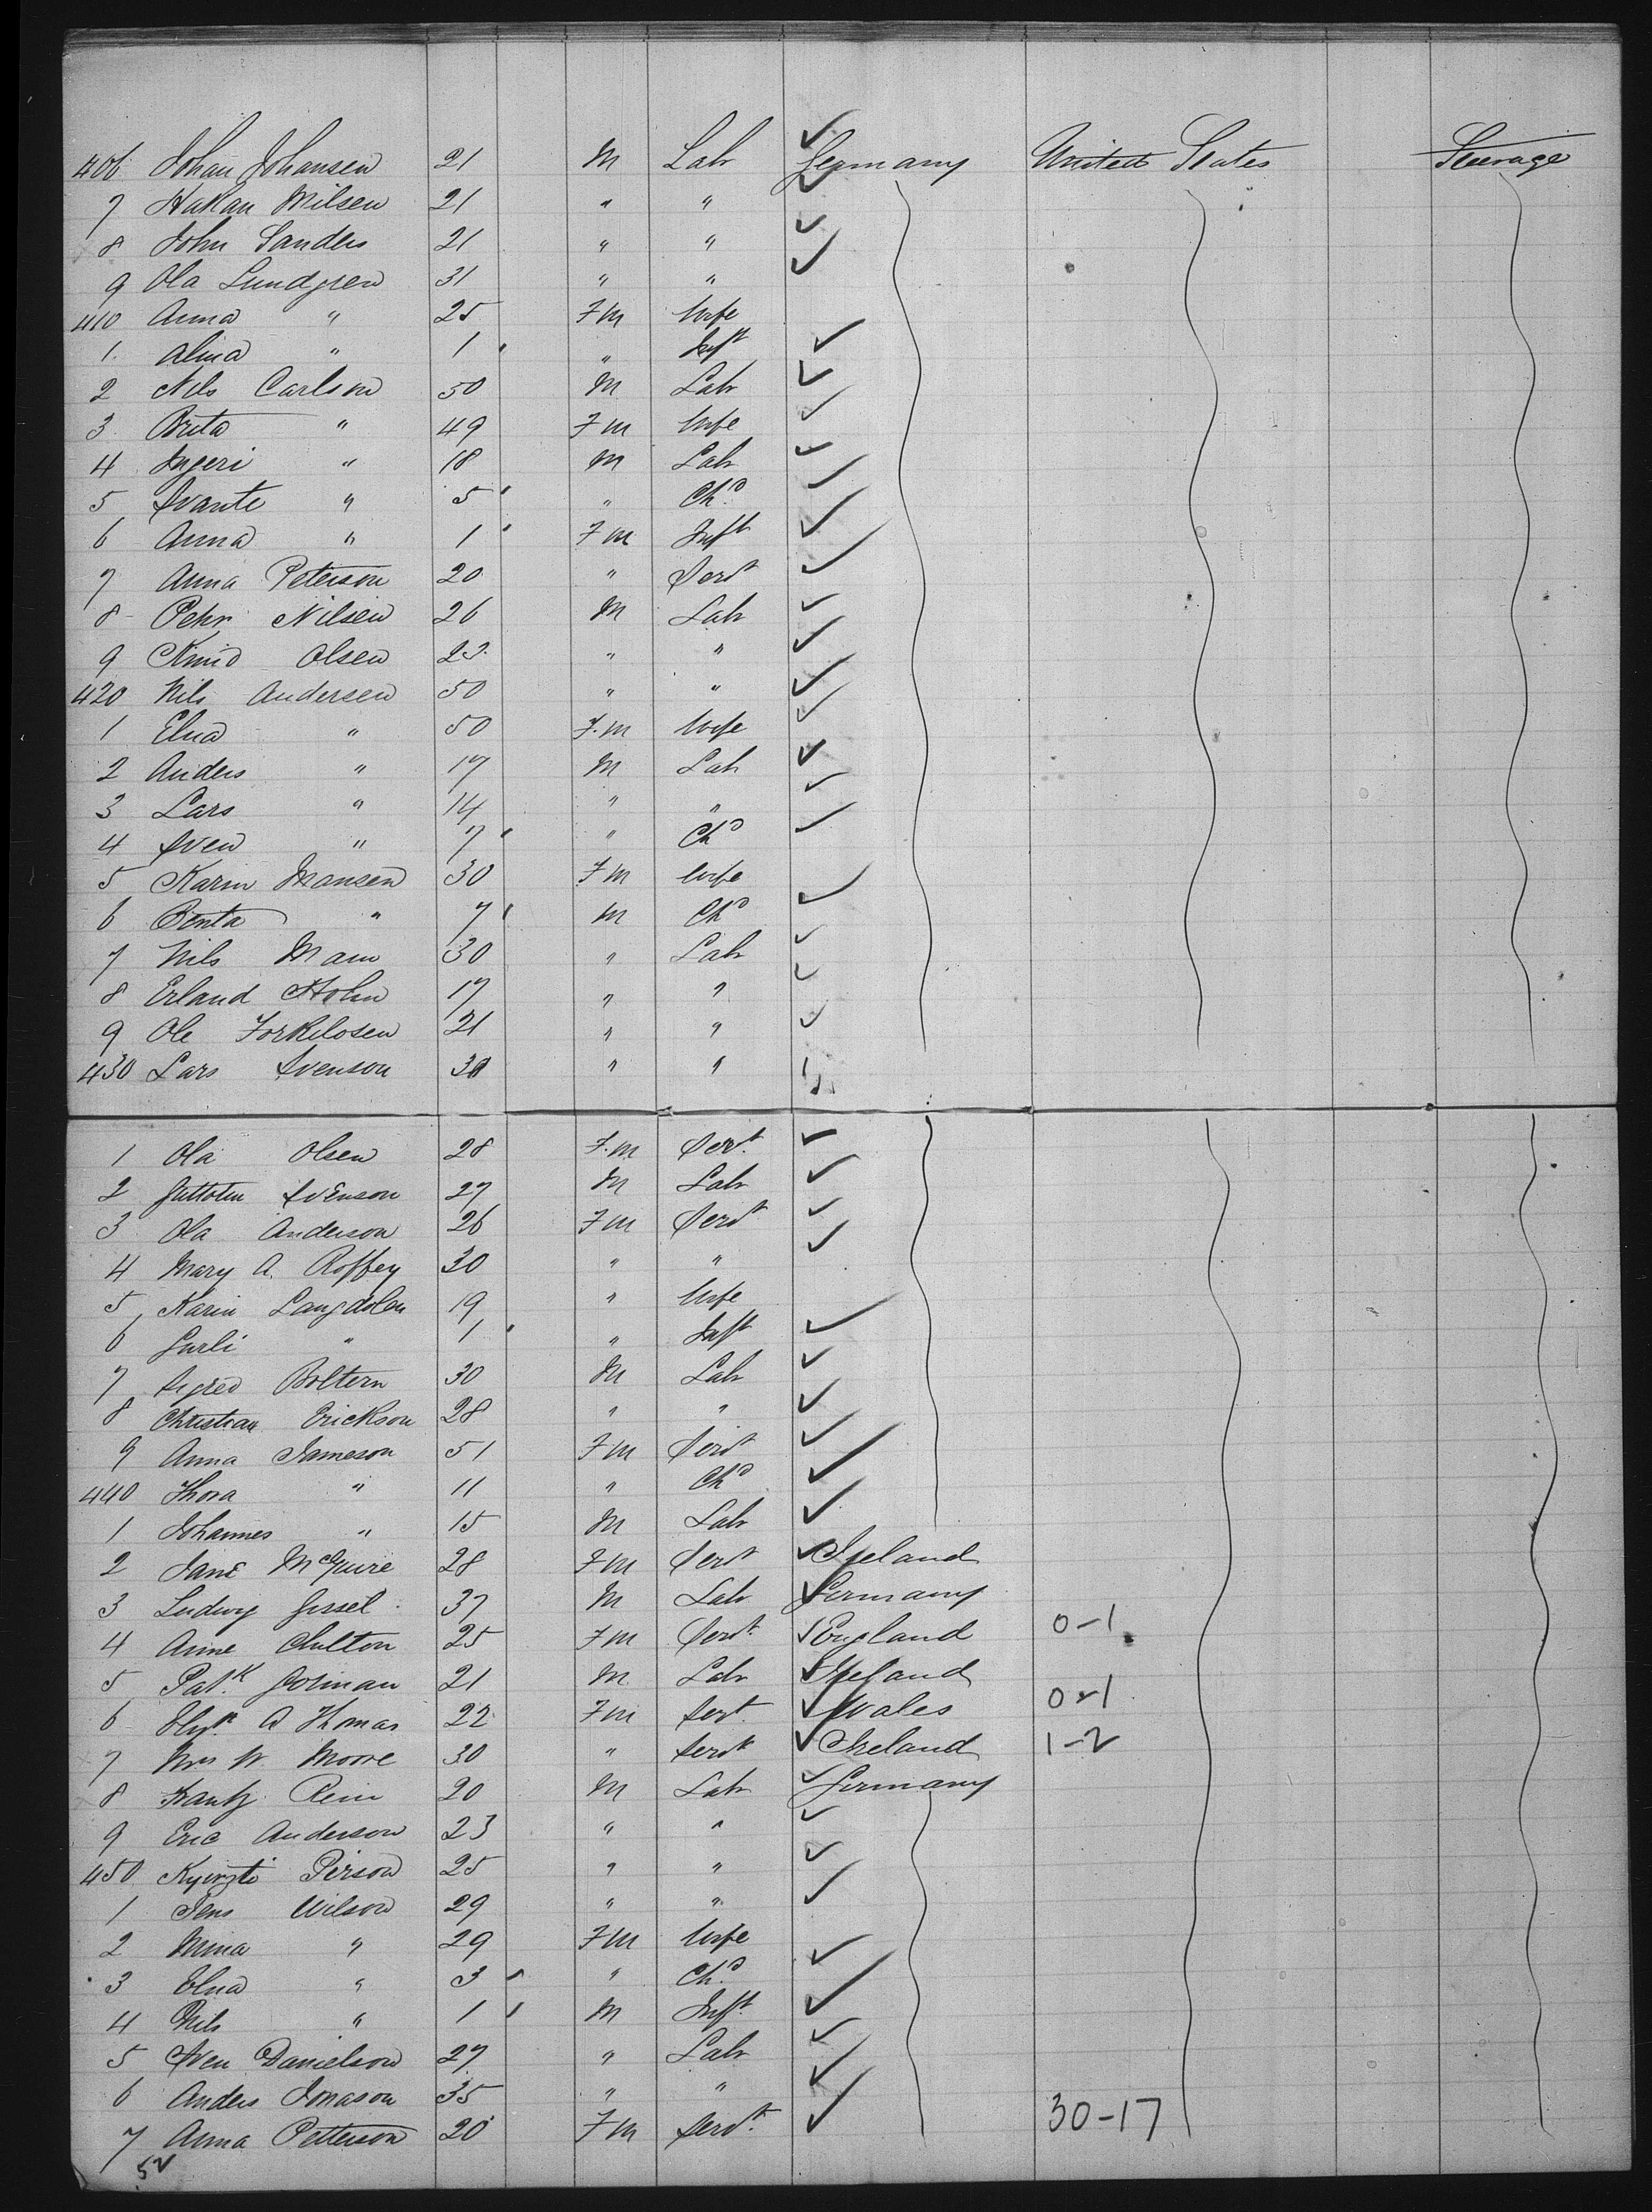 406 Johan Johansen 21 M Labr Germany United States Steerage
7 Hakan Nilsen 21 " "
8 John Sanders 21 " "
9 Ola Lundgren 31 " "
410 Anna " 25 Fm Wife
1 Alma " 1 " Inft
2 Nils Carlson 50 M Labr
3 Brita " 49 Fm Wife
4 Ingeri " 18 M Labr
5 Svante " 5 " Chd
6 Anna " 1 Fm Inft
7 Anna Peterson 20 " Servt
8 Pehr Nilsen 26 M Labr
9 Knud Olsen 23 " "
420 Nils Andersen 50 " "
1 Elna " 50 Fm Wife
2 Anders " 17 M Labr
3 Lars " 14 " "
4 Sven " 7 " Chd
5 Karin Mansen 30 Fm Wife
6 Benta " 7 M Chd
7 Nils Mann 30 " Labr
8 Erland Holm 17 " "
9 Ole Torkilosen 21 " "
430 Lars Svenson 30 " "
1 Ola Olsen 28 Fm Servt
2 Svenson 27 M Labr
3 Ola Anderson 26 Fm Servt
4 Mary A. Roffey 30 " "
5 Karin Langdolen 19 " Wife
6 Gurli " 1 " Inft
7 Sigred Boltern 30 M Labr
8 Christian Erickson 28 " "
9 Anna Jameson 51 Fm Servt
440 Thora " 11 " Chd
1 Johannes " 15 M Labr
2 Jane McGuire 28 Fm Servt Ireland
3 Ludwig Gessel 37 M Labr Germany
4 Anne Chilton 25 Fm Servt England 0-1
5 Patk Gorman 21 M Labr Ireland
6 Elizth A Thomas 22 Fm Servt Wales 0-1
7 Mrs W. Moore 30 " Servt Ireland 1-2
8 Rein 20 M Labr Germany
9 Eric Anderson 23 " "
450 Person 25 " "
1 Jens Nilson 29 " "
2 Mina " 29 Fm Wife
3 Elna " 3 " Chd
4 Nils " 1 M Inft
5 Sven Danielson 27 " Labr
6 Anders Jonason 35 " "
7 Anna Petterson 20 Fm Servt 30-17
52